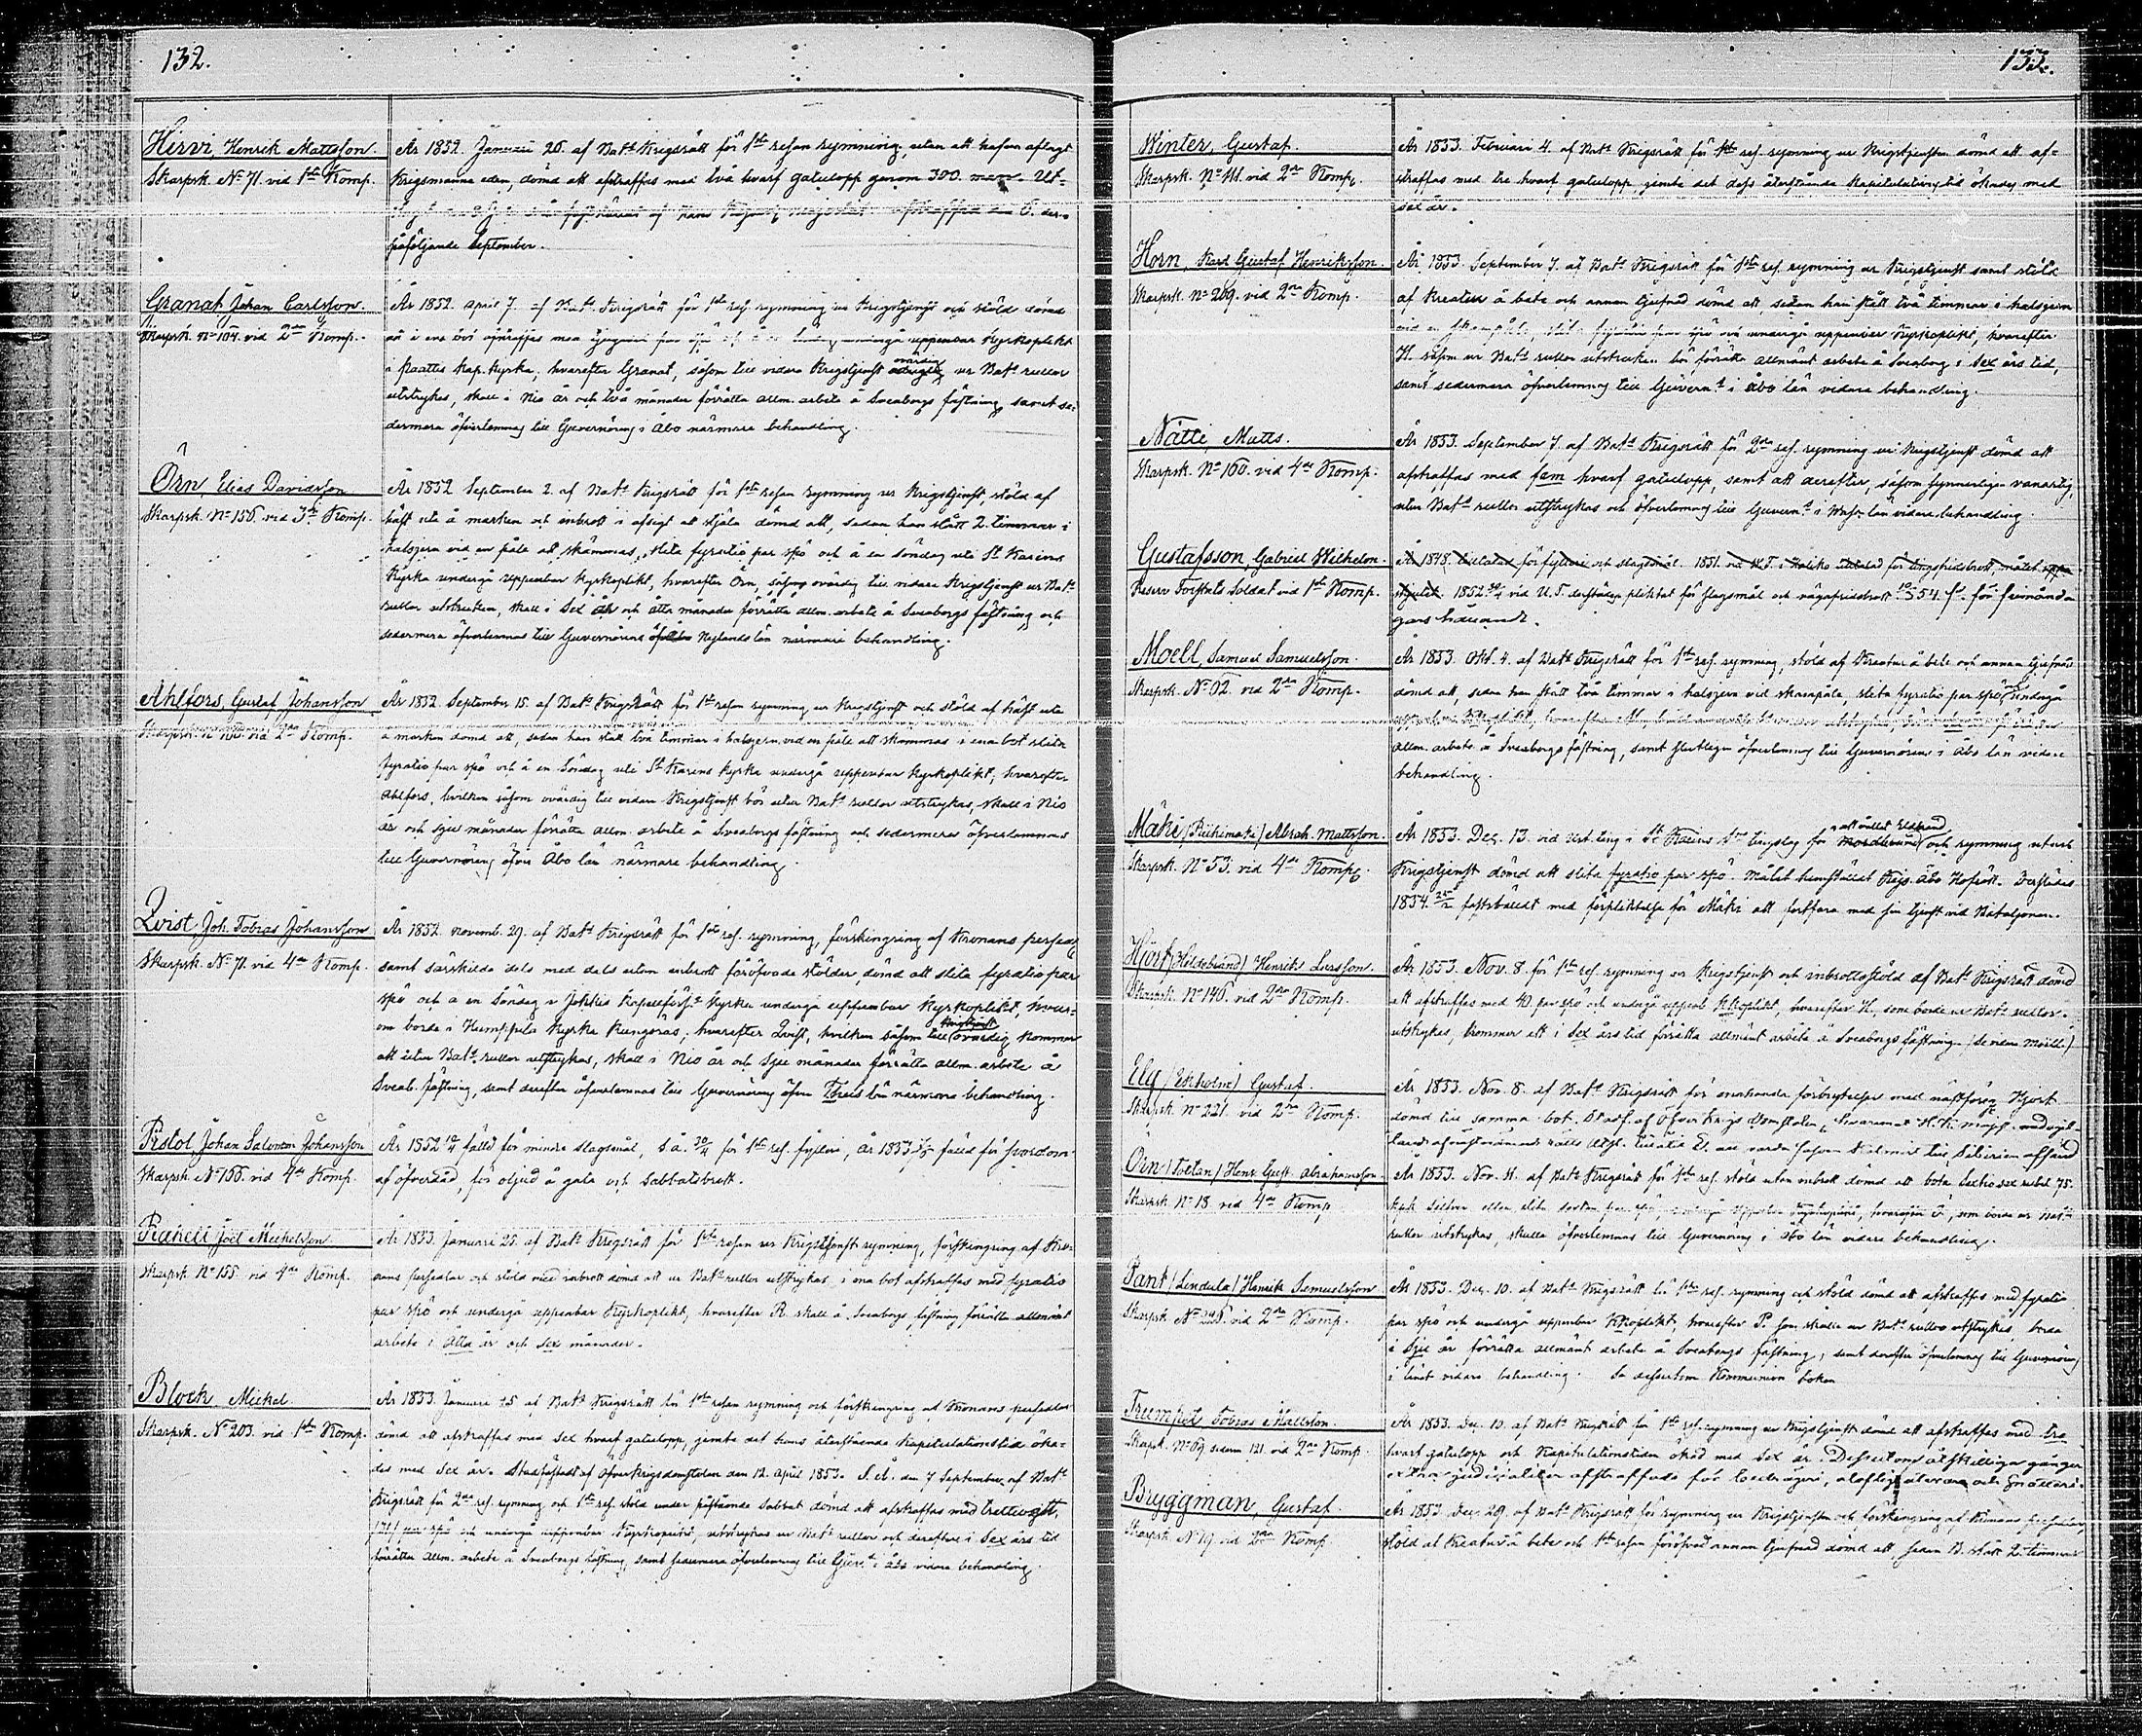 132.
Hirvi, Henrik Mattsson.
Skarpsk. No 71. vid 1sta Komp.
År 1852. Januari 26. af Bats Krigsrätt för 1sta resan rymning, utan att hafva aflagt
Krigsmanna eden, dömd att afstraffas med två hvarf gatulopp genom 300. man. Ut-
af Hans Kejserl. Majestät. afstraffad den 6. der-
påföljande September.
Granat, Johan Carlsson.
Skarpsk. No 104. vid 2dra Komp.
År 1852. April 7. af Bats Krigsrätt för 1sta res. rymning ur Krigstjenst och stöld dömd
att i ena bot afstraffas med undergå uppenbar Kyrkoplikt
i kap. kyrka, hvarefter Granat, såsom till vidare Krigstjenst ovärdig ur Bats rullor
utstrykes, skall i Nio år och två månader förrätta allm. arbete å Sveaborgs fästning, samt se-
dermera öfverlemnas till Guvernörens i Åbo närmare behandling.
Örn, Elias Davidsson
Skarpsk. No 156. vid 3dje Komp.
År 1852 September 2. af Bats Krigsrätt för 1sta resan rymning ur Krigstjenst stöld af
häst ute å marken och inbrott i afsigt at stjäla dömd att, sedan han stått 2. timmar i
halsjern vid en påle att skämmas, slita fyratio par spö och å en söndag uti St Karins
Kyrka undergå uppenbar kyrkoplikt, hvarefter Örn, såsom ovärdig till vidare Krigstjenst ur Bats
rullor utstruken, skall i Sex år och åtta månader förrätta allm. arbete å Sveaborgs fästning och
sedermera öfverlemnas till Guvernörens öfver Nylands län närmare behandling.
Ahlfors, Gustaf Johansson
Skarpsk. vid 2dra Komp.
År 1852. September 15. af Bats Krigsrätt för 1sta resan rymning ur Krigstjenst och stöld af häst ute
å marken dömd att, sedan han stått två timmar i halsjern vid en påle att skämmas i ena bot slita
fyratio par spö och å en Söndag uti St Karins kyrka undergå uppenbar kyrkoplikt, hvarefter
Ahlfors, hvilken såsom ovärdig till vidare Krigstjenst bör utur Bats rullor utstrykas, skall i Nio
år och sju månader förrätta allm. arbete å Sveaborgs fästning och sedermera öfverlemnas
till Guvernörens öfver Åbo län närmare behandling.
Qvist, Joh. Tobias Johansson
Skarpsk. No 71. vid 4de Komp.
År 1852. novemb. 29. af Bats Krigsrätt för 1sta res. rymning, förskingring af Kronans persedlar
samt särskilde dels med dels utan inbrott föröfvade stölder, dömd att slita fyratio par
spö och å en Söndag i Jokkis Kapellförs. kyrka undergå uppenbar kyrkoplikt, hvar-
om borde i Humppila kyrka kungöras, hvarefter Qvist, hvilken såsom till krigstjenst ovärdig kommer
att utur Bats rullor utstrykas, skall i Nio år och Sju månader förrätta allm. arbete å
Sveab. fästning, samt derefter öfverlemnas till Guvernörens öfver län närmare behandling.
Pistol, Johan Salomon Johansson
Skarpsk. No 166. vid 4de Komp.
År 1852 fälld för mindre slagsmål, s.å. för 1sta res. fylleri, år 1853 fälld för svordom
af öfverdåd, för oljud å gata och Sabbatsbrott.
Rahell, Joël Michelsson
Skarpsk. No 155. vid 4de Komp.
År 1853. Januari 25. af Bats Krigsrätt för 1sta resan ur Krigstjenst rymning, förskingring af Kro-
nans persedlar och stöld med inbrott dömd att ur Bats rullor utstrykas, i ena bot afstraffas med fyratio
par spö och undergå uppenbar Kyrkoplikt, hvarefter R. skall å Sveaborgs fästning förrätta allmänt
arbete i Åtta år och Sex månader.
Block Mickel.
Skarpsk. No 203. vid 1sta Komp.
År 1853. Januari 25 af Bats Krigsrätt för 1sta resan rymning och förskingring af Kronans persedlar
dömd att afstraffas med Sex hvarf gatulopp, jemte det hans återstående Kapitulationstid öka-
des med Sex år. Stadsfästadt af Öfverkrigsdomstolen den 12. April 1853. S.å. den 7 September af Bats
Krigsrätt för 2dra res. rymning och 1sta res. stöld under påstående Sabbat dömd att afstraffas med
par spö och undergå uppenbar Kyrkoplikt, utstrykas ur Bats rullor och derefter i Sex års tid
förrätta allm. arbete å Sveaborgs fästning, samt sedermera öfverlemnas till Guv. i Åbo vidare behandling.
133.
Winter, Gustaf.
Skarpsk. No 111. vid 2dra Komp.
År 1853. Februari 4. af Bats Krigsrätt för 1sta res. rymning ur Krigstjensten dömd att af-
straffas med tre hvarf gatulopp, jemte det dess återstående Kapitulationstid ökades med
sex år.
Horn, Karl Gustaf Henriksson.
Skarpsk. No 209. vid 2dra Komp.
År 1853. September 7. af Bats Krigsrätt för 1sta res. rymning ur Krigstjenst samt stöld
af Kreatur å bete och annan tjufnad dömd att, sedan han stått två timmar i halsjern
vid en skampåle, slita fyratio par spö och undergå uppenbar Kyrkoplikt, hvarefter
H. såsom ur Bats rullor utstruken bör förrätta allmänt arbete å Sveaborg i Sex års tid,
samt sedermera öfverlemnas till Guvern. i Åbo län vidare behandling.
Nätti, Matts.
Skarpsk. No 160. vid 4de Komp.
År 1853. September 7. af Bats Krigsrätt för 2dra res. rymning ur Krigstjenst dömd att
afstraffas med fem hvarf gatulopp, samt att derefter, såsom synnerligen vanartig,
utur Bats rullor utstrykas och öfverlemnas till Guvern. i Wasa län vidare behandling.
Gustafsson, Gabriel Wilhelm.
Reserv Forstats Soldat vid 1sta Komp.
År 1848. för fylleri och slagsmål. 1851. vid V.T. i Haliko för tingsfridsbrott, målet
1852 vid U.T. derstädes pliktat för slagsmål och vägafridsbrott
Moell, Samuel Samuelsson.
Skarpsk. No 62. vid 2dra Komp.
År 1853. Okt. 4. af Bats Krigsrätt för 1sta res. rymning, stöld af Kreatur å bete och annan tjufnad
dömd att, sedan han stått två timmar i halsjern vid skampåle, slita fyratio par spö, undergå
uppenbar Kyrkoplikt, hvarefter
allm. arbete å Sveaborgs fästning, samt slutligen öfverlemnas till Guvernörens i Åbo län vidare
behandling.
Mäki (Riihimäki) Abrah. Mattsson.
Skarpsk. No 53. vid 4de Komp.
År 1853. Dec. 13. vid Urt. ting i St Karins tingslag för att vållat Eldsvåda mordbrand och rymning utur
Krigstjenst dömd att slita fyratio par spö. Målet hemstäldt Kejs. Åbo Hofrätt. Derstädes
1854. fastställdt med förpliktelse för Mäki att fortfara med sin tjenst vid Bataljonen.
Hjort (Hildebrand) Henrik Larsson.
Skarpsk. No 146. vid 2dra Komp.
År 1853. Nov. 8. för 1sta res. rymning ur Krigstjenst och inbrottsstöld af Bats Krigsrätt dömd
att afstraffas med 40. par spö och undergå uppenb. K.koplikt, hvarefter H., som borde ur Bats rullor
utstrykas, kommer att i Sex års tid förrätta allmänt arbete å Sveaborgs fästning.
Elg (Ekholm) Gustaf.
Skarpsk. No 221. vid 2dra Komp.
År 1853. Nov. 8. af Bats Krigsrätt för enahanda förbrytelser med nästföreg. Hjort
dömd till samma bot.
till Siberien afsänd
Örn (Toctan) Henr. Gust. Abrahamsson.
Skarpsk. No 18. vid 4de Komp.
År 1853. Nov. 11. af Bats Krigsrätt för 1sta res. stöld utan inbrott dömd att böta Sextiosex rubel 75.
kop. silfver eller slita
rullor utstrykas, skulle öfverlemnas till Guvernörens i Åbo län vidare behandling.
Pant (Lindula) Henrik Samuelsson
Skarpsk. No 226. vid 2dra Komp.
År 1853. Dec. 10. af Bats Krigsrätt för 1sta res. rymning och stöld dömd att afstraffas med fyratio
par spö och undergå uppenbar K.koplikt, hvarefter P. som skulle ur Bats rullor utstrykas, borde
i Sju år förrätta allmänt arbete å Sveaborgs fästning, samt derefter öfverlemnas till Guvernörens
i länet vidare behandling. Se dessutom Kommunion boken
Trumpet Tobias Mattsson.
Skarpsk. No 69. sedan 121. vid 2dra Komp.
År 1853. Dec. 10. af Bats Krigsrätt för 1sta res. rymning ur Krigstjenst dömd att afstraffas med tre
hvarf gatulopp och Kapitulationstiden ökad med Sex år. Dessutom åtskilliga gånger
extra judicialiter afstraffade för bedrägeri, och snatteri.
Bryggman, Gustaf.
Skarpsk. No 19. vid 2dra Komp.
År 1853. Dec. 29. af Bats Krigsrätt för rymning ur Krigstjensten och förskingring af Kronans persedlar,
stöld af Kreatur å bete och 1sta resan föröfvad annan tjufnad dömd att, sedan B. stått 2. timmar